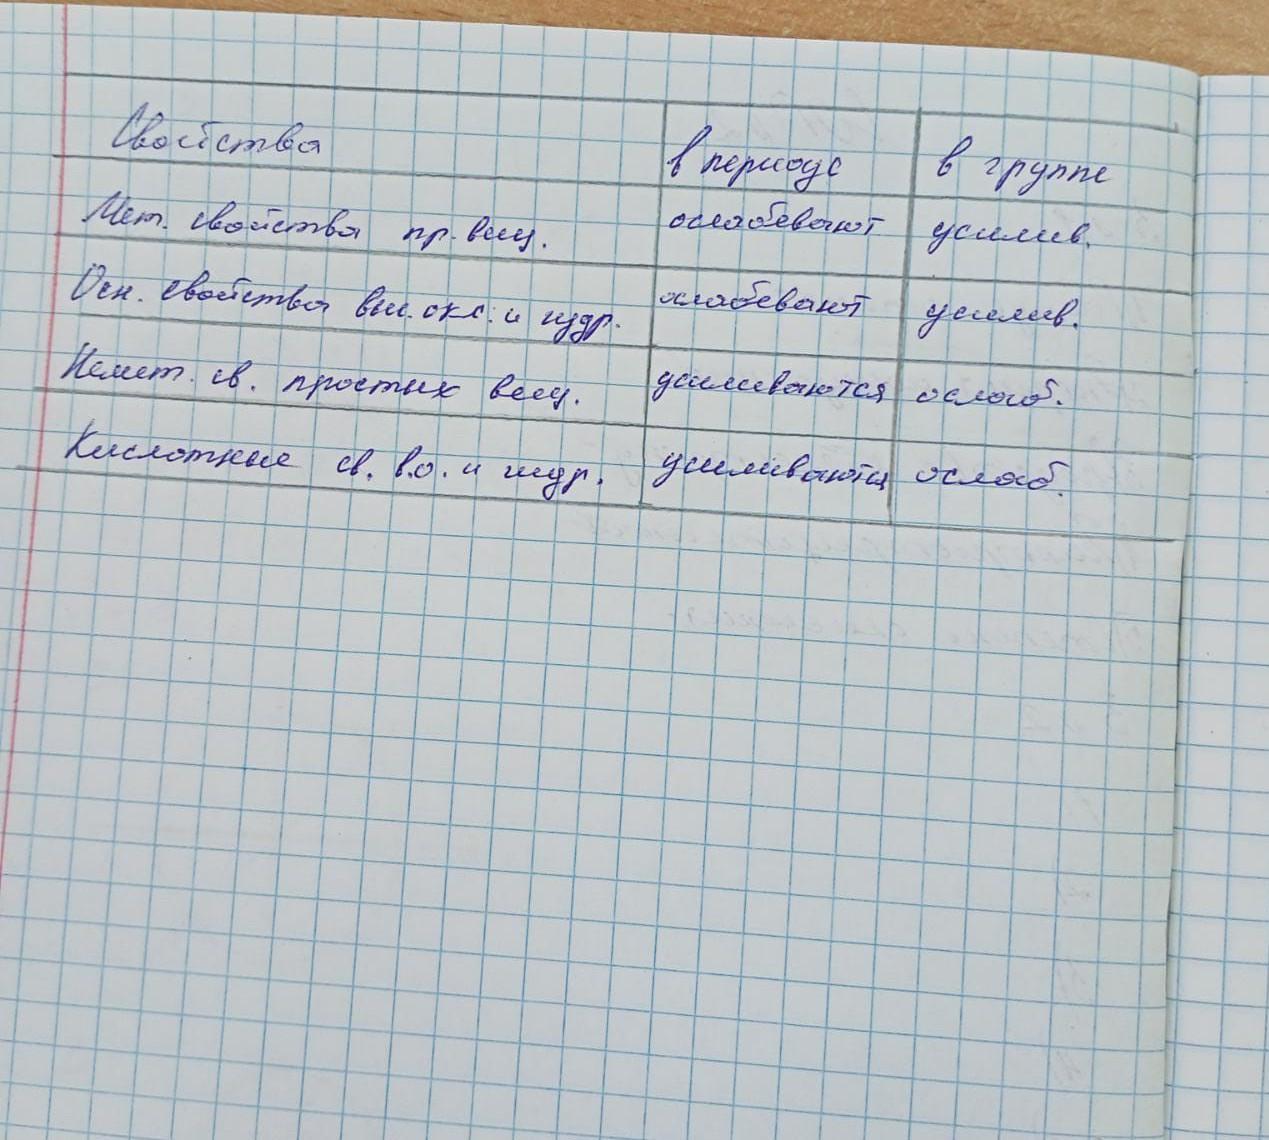 Свойства в периоде в группе
Мет. свойства пр. вещ. ослабевают усилив.
Осн. свойства выс. окс. и гидр. ослабевают усилив.
Немет. св. простых вещ. усиливаются ослаб.
Кислотные св. в.о. и гидр. усиливаются ослаб.